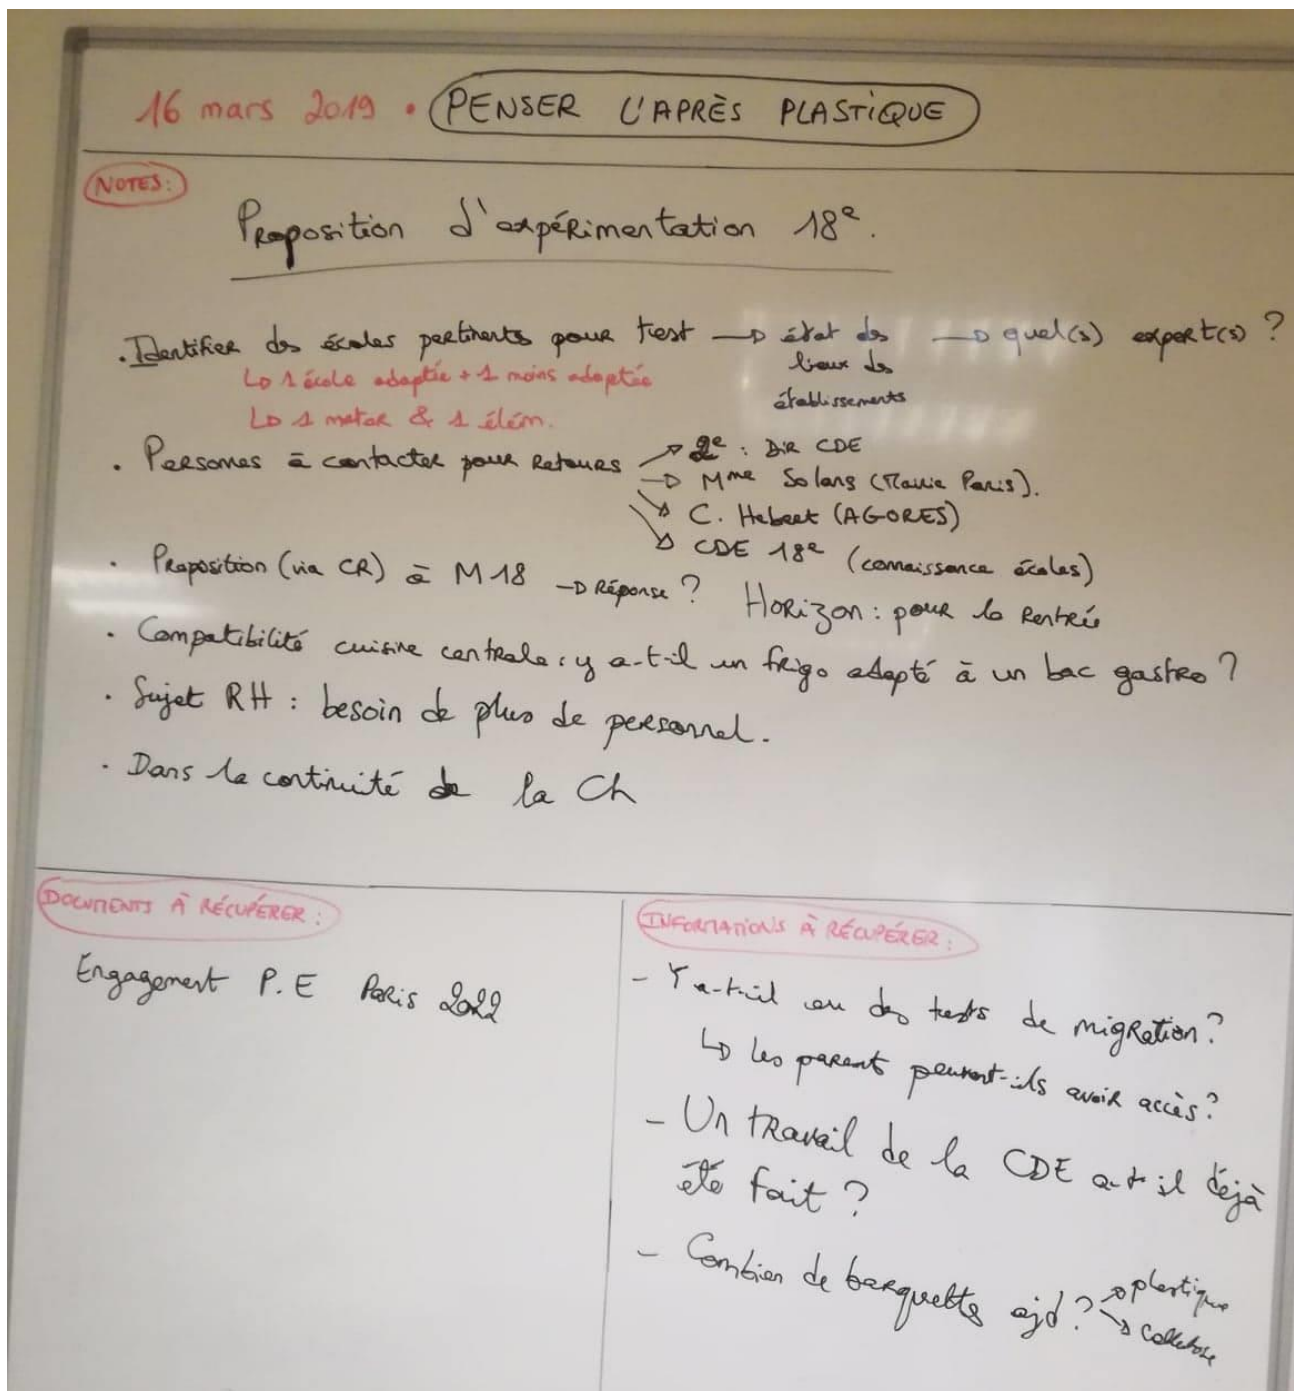 16 mars 2019 • PENSER L'APRÈS PLASTIQUE
NOTES:
Proposition d'expérimentation 18e.
. Identifier des écoles pertinents pour test → état des → quel(s) expert(s) ?
lieux des
établissements
↳ 1 école adaptée + 1 moins adaptée
↳ 1 mater & 1 élém.
. Personnes à contacter pour retours ↗ 2e : DIR CDE
→ Mme Solans (Mairie Paris).
↘ C. Hebert (AGORES)
↘ CDE 18e (connaissance écoles)
. Proposition (via CR) à M18 → Réponse ? Horizon : pour la Rentrée
. Compatibilité cuisine centrale : y a-t-il un frigo adapté à un bac gastro ?
. Sujet RH : besoin de plus de personnel.
. Dans la continuité de la Ch
DOCUMENTS À RÉCUPÉRER :
Engagement P.E Paris 2022
INFORMATIONS À RÉCUPÉRER :
- Y a-t-il eu des tests de migration ?
↳ les parents peuvent-ils avoir accès ?
- Un travail de la CDE a-t-il déjà
été fait ?
- Combien de barquettes ajd ? → plastique
→ cellulose